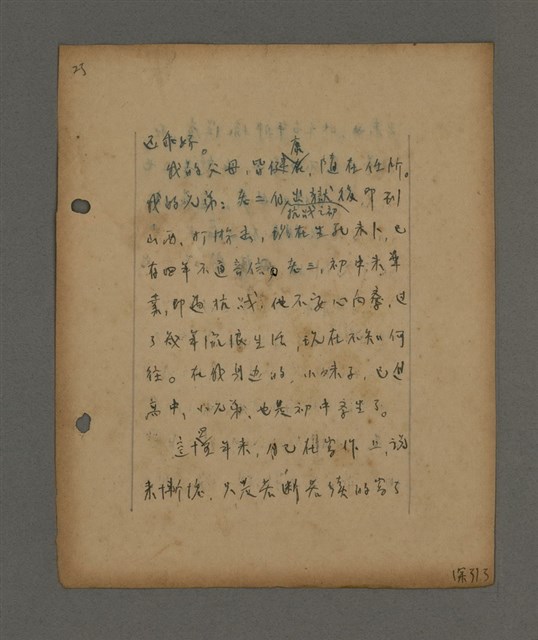 23
还能好。
我的父母,皆健康,随在任所。
我的兄弟:老二们出狱後,即到
抗战之初
山西,打游击,现在生死未卜,已
有四年不通音信。老三,初中未畢
業,即遇抗战。他不安心内,过
了幾年流浪生活,现在不知何
往。在我身边的,小妹子,已进
高中,小兄弟,也是初中学生了。
這十年来,自己在写作上,说
来惭愧,只是若断若续的写了